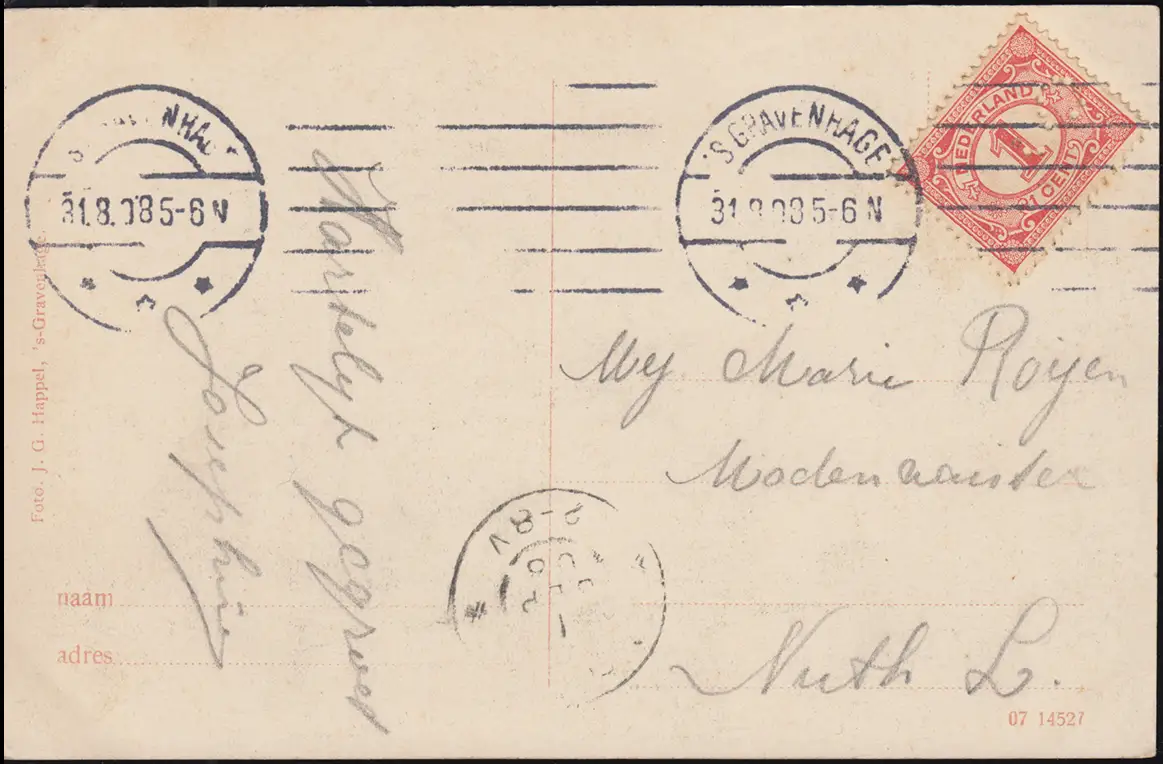 'S GRAVENHAGE
31.8.08 5-6 N
'S GRAVENHAGE
31.8.08 5-6 N
NEDERLAND
1
1 CENT
Foto. J. G. Happel, 's-Gravenhage.
Hartelijk gegroet
Josephine
Mej Marie Roijen
Nuth L.
2-8V
naam
adres
07 14527